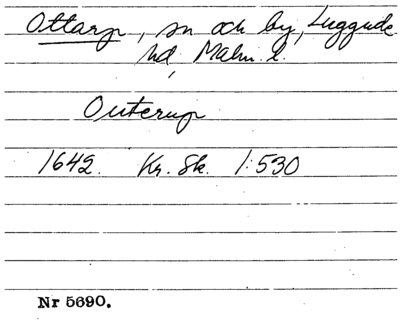 Ottarp, sn och by, Luggude
hd, Malm. l.
Outerup
1642. Kr. Sk. 1:530
Nr 5690.